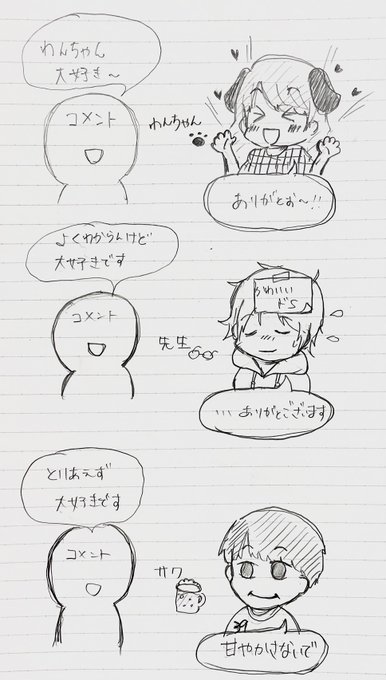 わんちゃん
大好き～
コメント
わんちゃん
ありがとお～!!
よくわからんけど
大好きです
コメント
かわいい
ドS
先生
・・・ありがとございます
とりあえず
大好きです
コメント
サワ
39
甘やかさないで